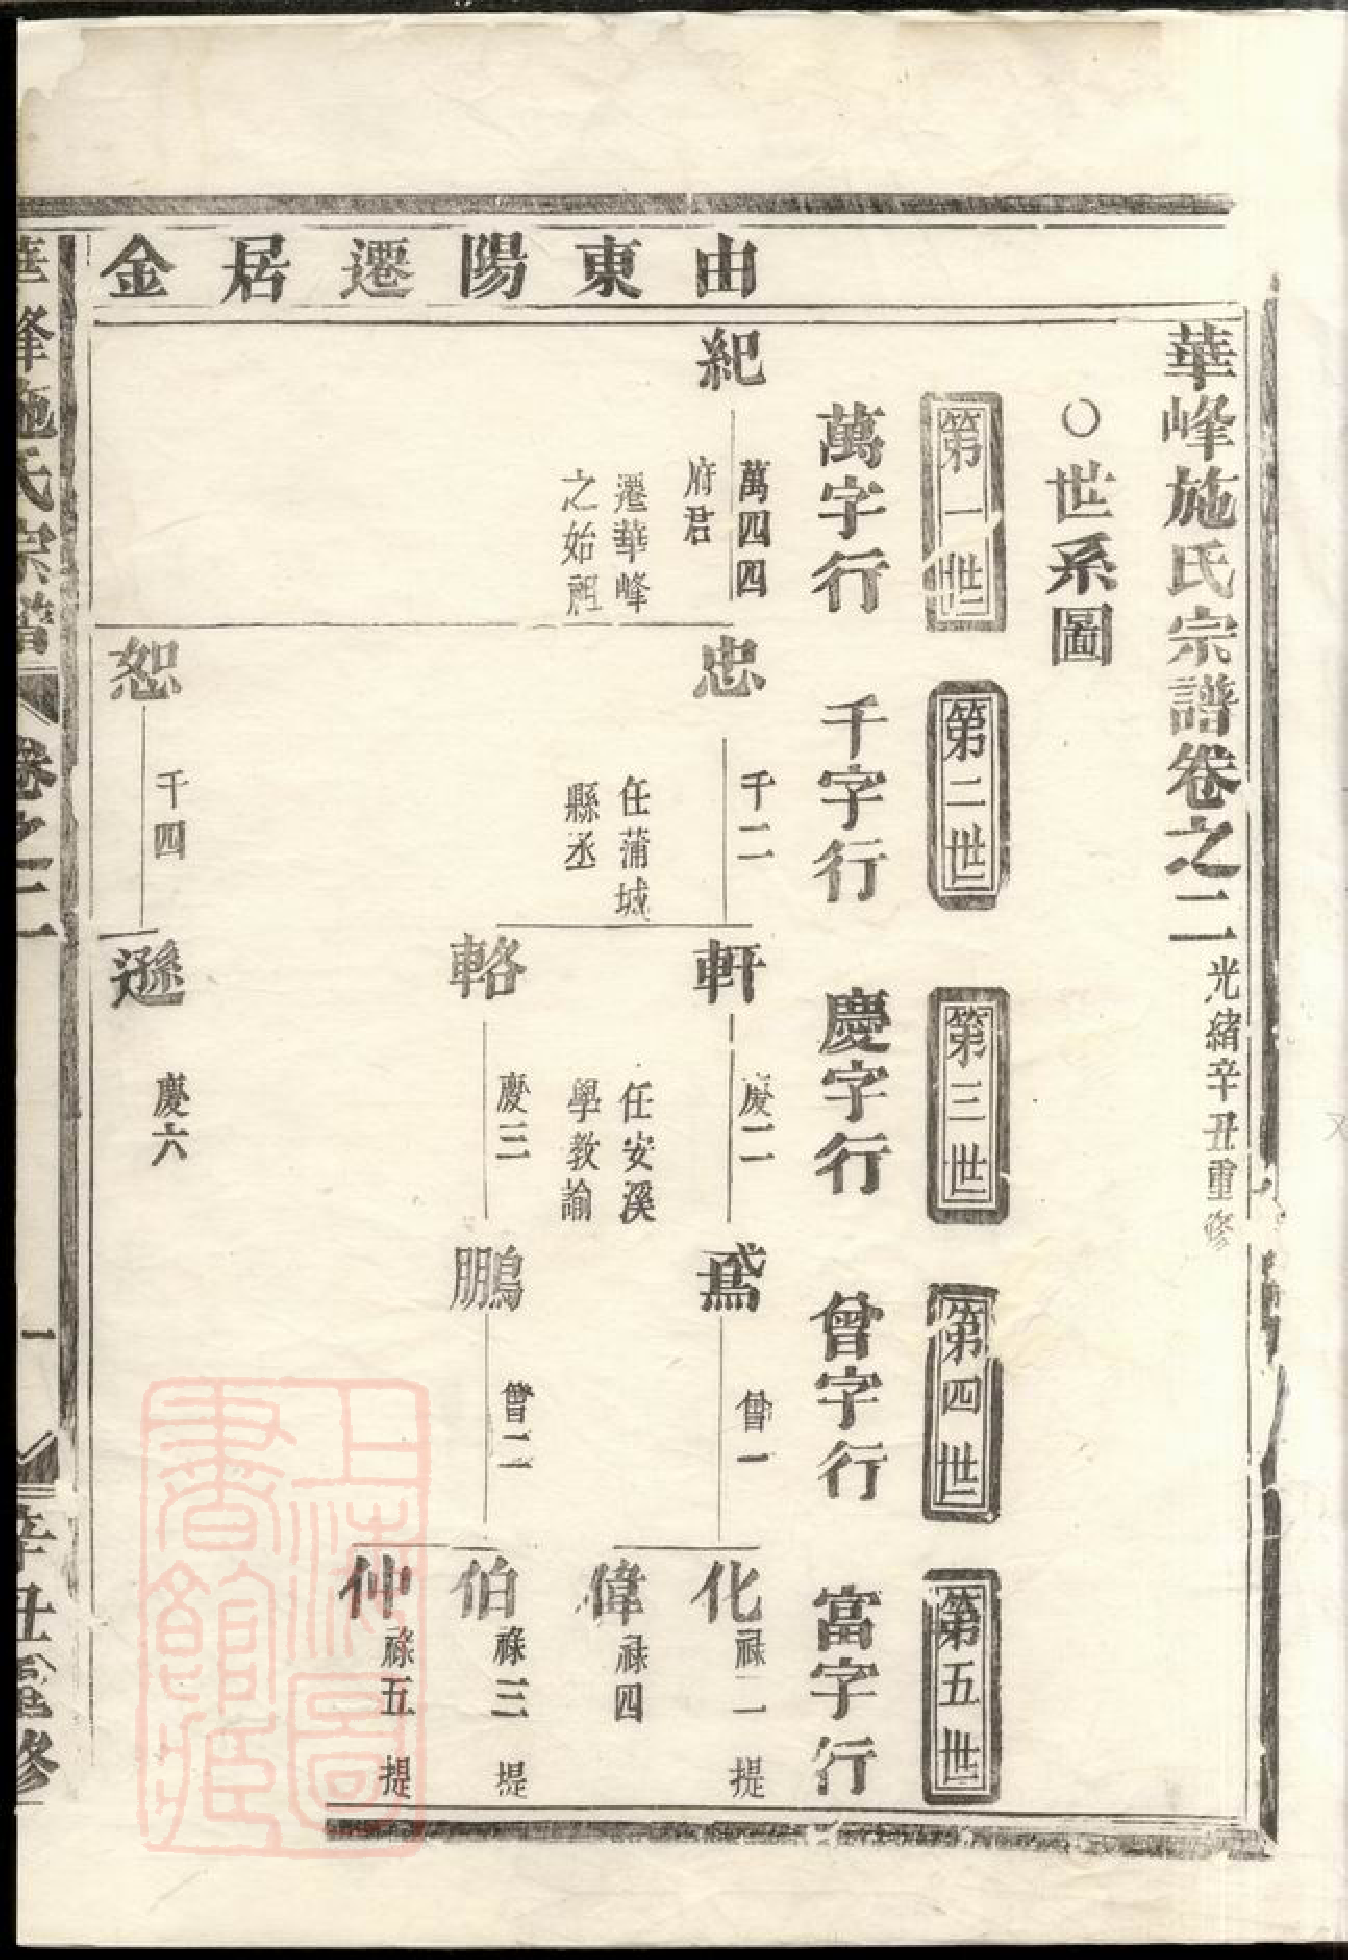 華峰施氏宗譜卷之二 光緒辛丑重修
○世系圖
第一世
第二世
第三世
第四世
第五世
萬字行
千字行
慶字行
曾字行
富字行
由東陽遷居金
紀
萬四四
府君
遷華峰
之始祖
忠
千二
任蒲城
縣丞
軒
慶二
任安溪
學教諭
鳶
曾一
化
祿二 提
偉
祿四
輅
慶三
鵬
曾二
伯
祿三 提
仲
祿五 提
恕
千四
遜
慶六
華峰施氏宗譜
卷之二
一
辛丑重修
上海圖
書館藏